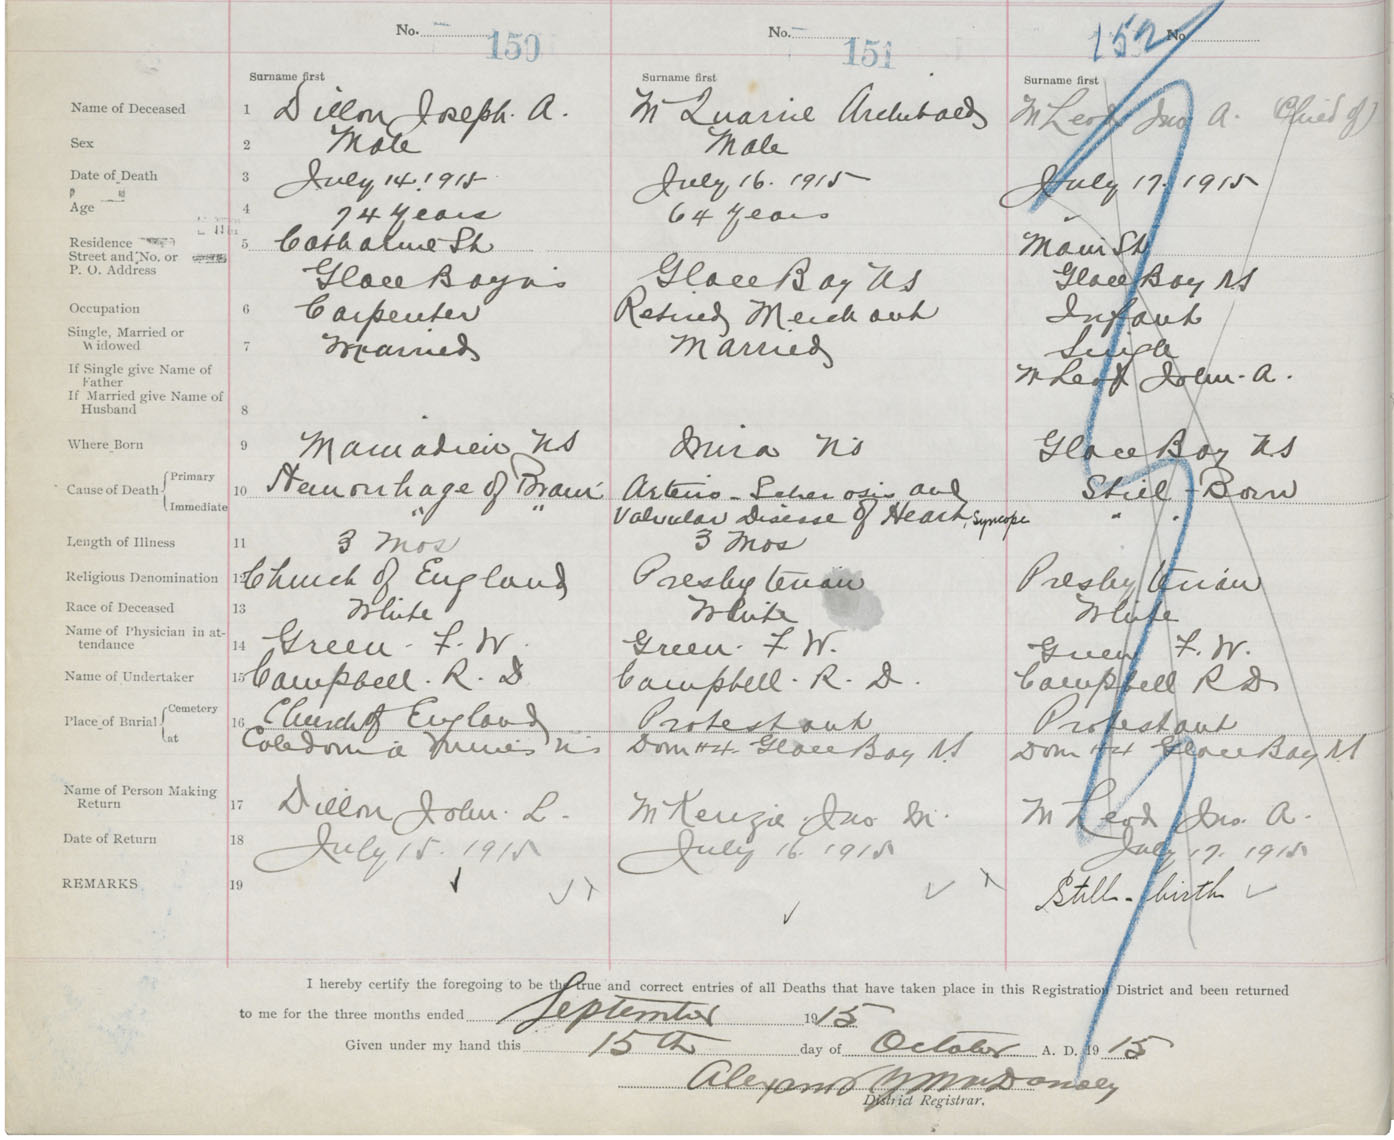 No. 150 No. 151 152 No.
Surname first Surname first Surname first
Name of Deceased 1 Dillon Joseph. A. McQuarrie Archibald McLeod Jno A. (Child of)
Sex 2 Male Male
Date of Death 3 July 14. 1915 July 16. 1915 July 17. 1915
Age 4 74 Years 64 Years "
Residence 5 Catharine St Main St
Street and No. or
P. O. Address Glace Bay NS Glace Bay NS Glace Bay NS
Occupation 6 Carpenter Retired Merchant Infant
Single, Married or
Widowed 7 Married Married Single
If Single give Name of
Father McLeod John. A.
If Married give Name of
Husband 8
Where Born 9 NS Mira NS Glace Bay NS
Cause of Death Primary 10 Hemorrhage of Brain Arterio-Schlerosis and Still-Born
Immediate " " Valvular Disease of Heart, Syncope " "
Length of Illness 11 3 Mos 3 Mos
Religious Denomination 12 Church of England Presbyterian Presbyterian
Race of Deceased 13 White White White
Name of Physician in at-
tendance 14 Green. F. W. Green. F. W. Green F. W.
Name of Undertaker 15 Campbell. R. D Campbell. R. D. Campbell R D
Place of Burial Cemetery 16 Church of England Protestant Protestant
at Caledonia Mines NS Dom #4 Glace Bay NS Dom #4 Glace Bay NS
Name of Person Making
Return 17 Dillon John. L. McKenzie Jno M. McLeod Jno. A.
Date of Return 18 July 15. 1915 July 16. 1915 July 17. 1915
REMARKS 19 Still-birth
I hereby certify the foregoing to be the true and correct entries of all Deaths that have taken place in this Registration District and been returned
to me for the three months ended September 1915
Given under my hand this 15th day of October A. D. 1915
District Registrar.